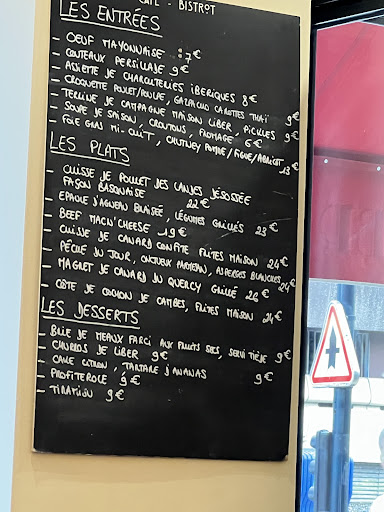 CAFÉ - BISTROT
LES ENTRÉES
- OEUF MAYONNAISE : 7€
- COUTEAUX PERSILLADE 9€
- ASSIETTE DE CHARCUTERIES IBERIQUES 8€
- CROQUETTE POULET/POULPE, GAZPACHO CAROTTES THAÏ 9€
- TERRINE DE CAMPAGNE MAISON LIBER, PICKLES 9€
- SOUPE DE SAISON, CROUTONS, FROMAGE 6€
- FOIE GRAS MI-CUIT, CHUTNEY POMME/FIGUE/ABRICOT 13€
LES PLATS
- CUISSE DE POULET DES LANDES DÉSOSSÉE
FAÇON BASQUAISE 22€
- EPAULE D'AGNEAU BRAISÉE, LÉGUMES GRILLÉS 23€
- BEEF MACN'CHEESE 19€
- CUISSE DE CANARD CONFITE FRITES MAISON 24€
- PÊCHE DU JOUR, ONCTUEUX PARMESAN, ASPERGES BLANCHES 24€
- MAGRET DE CANARD DU QUERCY GRILLÉ 26€
- CÔTE DE COCHON DE CAMBES, FRITES MAISON 24€
LES DESSERTS
- BRIE DE MEAUX FARCI AUX FRUITS SECS, SERVI TIÈDE 9€
- CHURROS DE LIBER 9€
- CAKE CITRON, TARTARE D'ANANAS 9€
- PROFITEROLE 9€
- TIRAMISU 9€